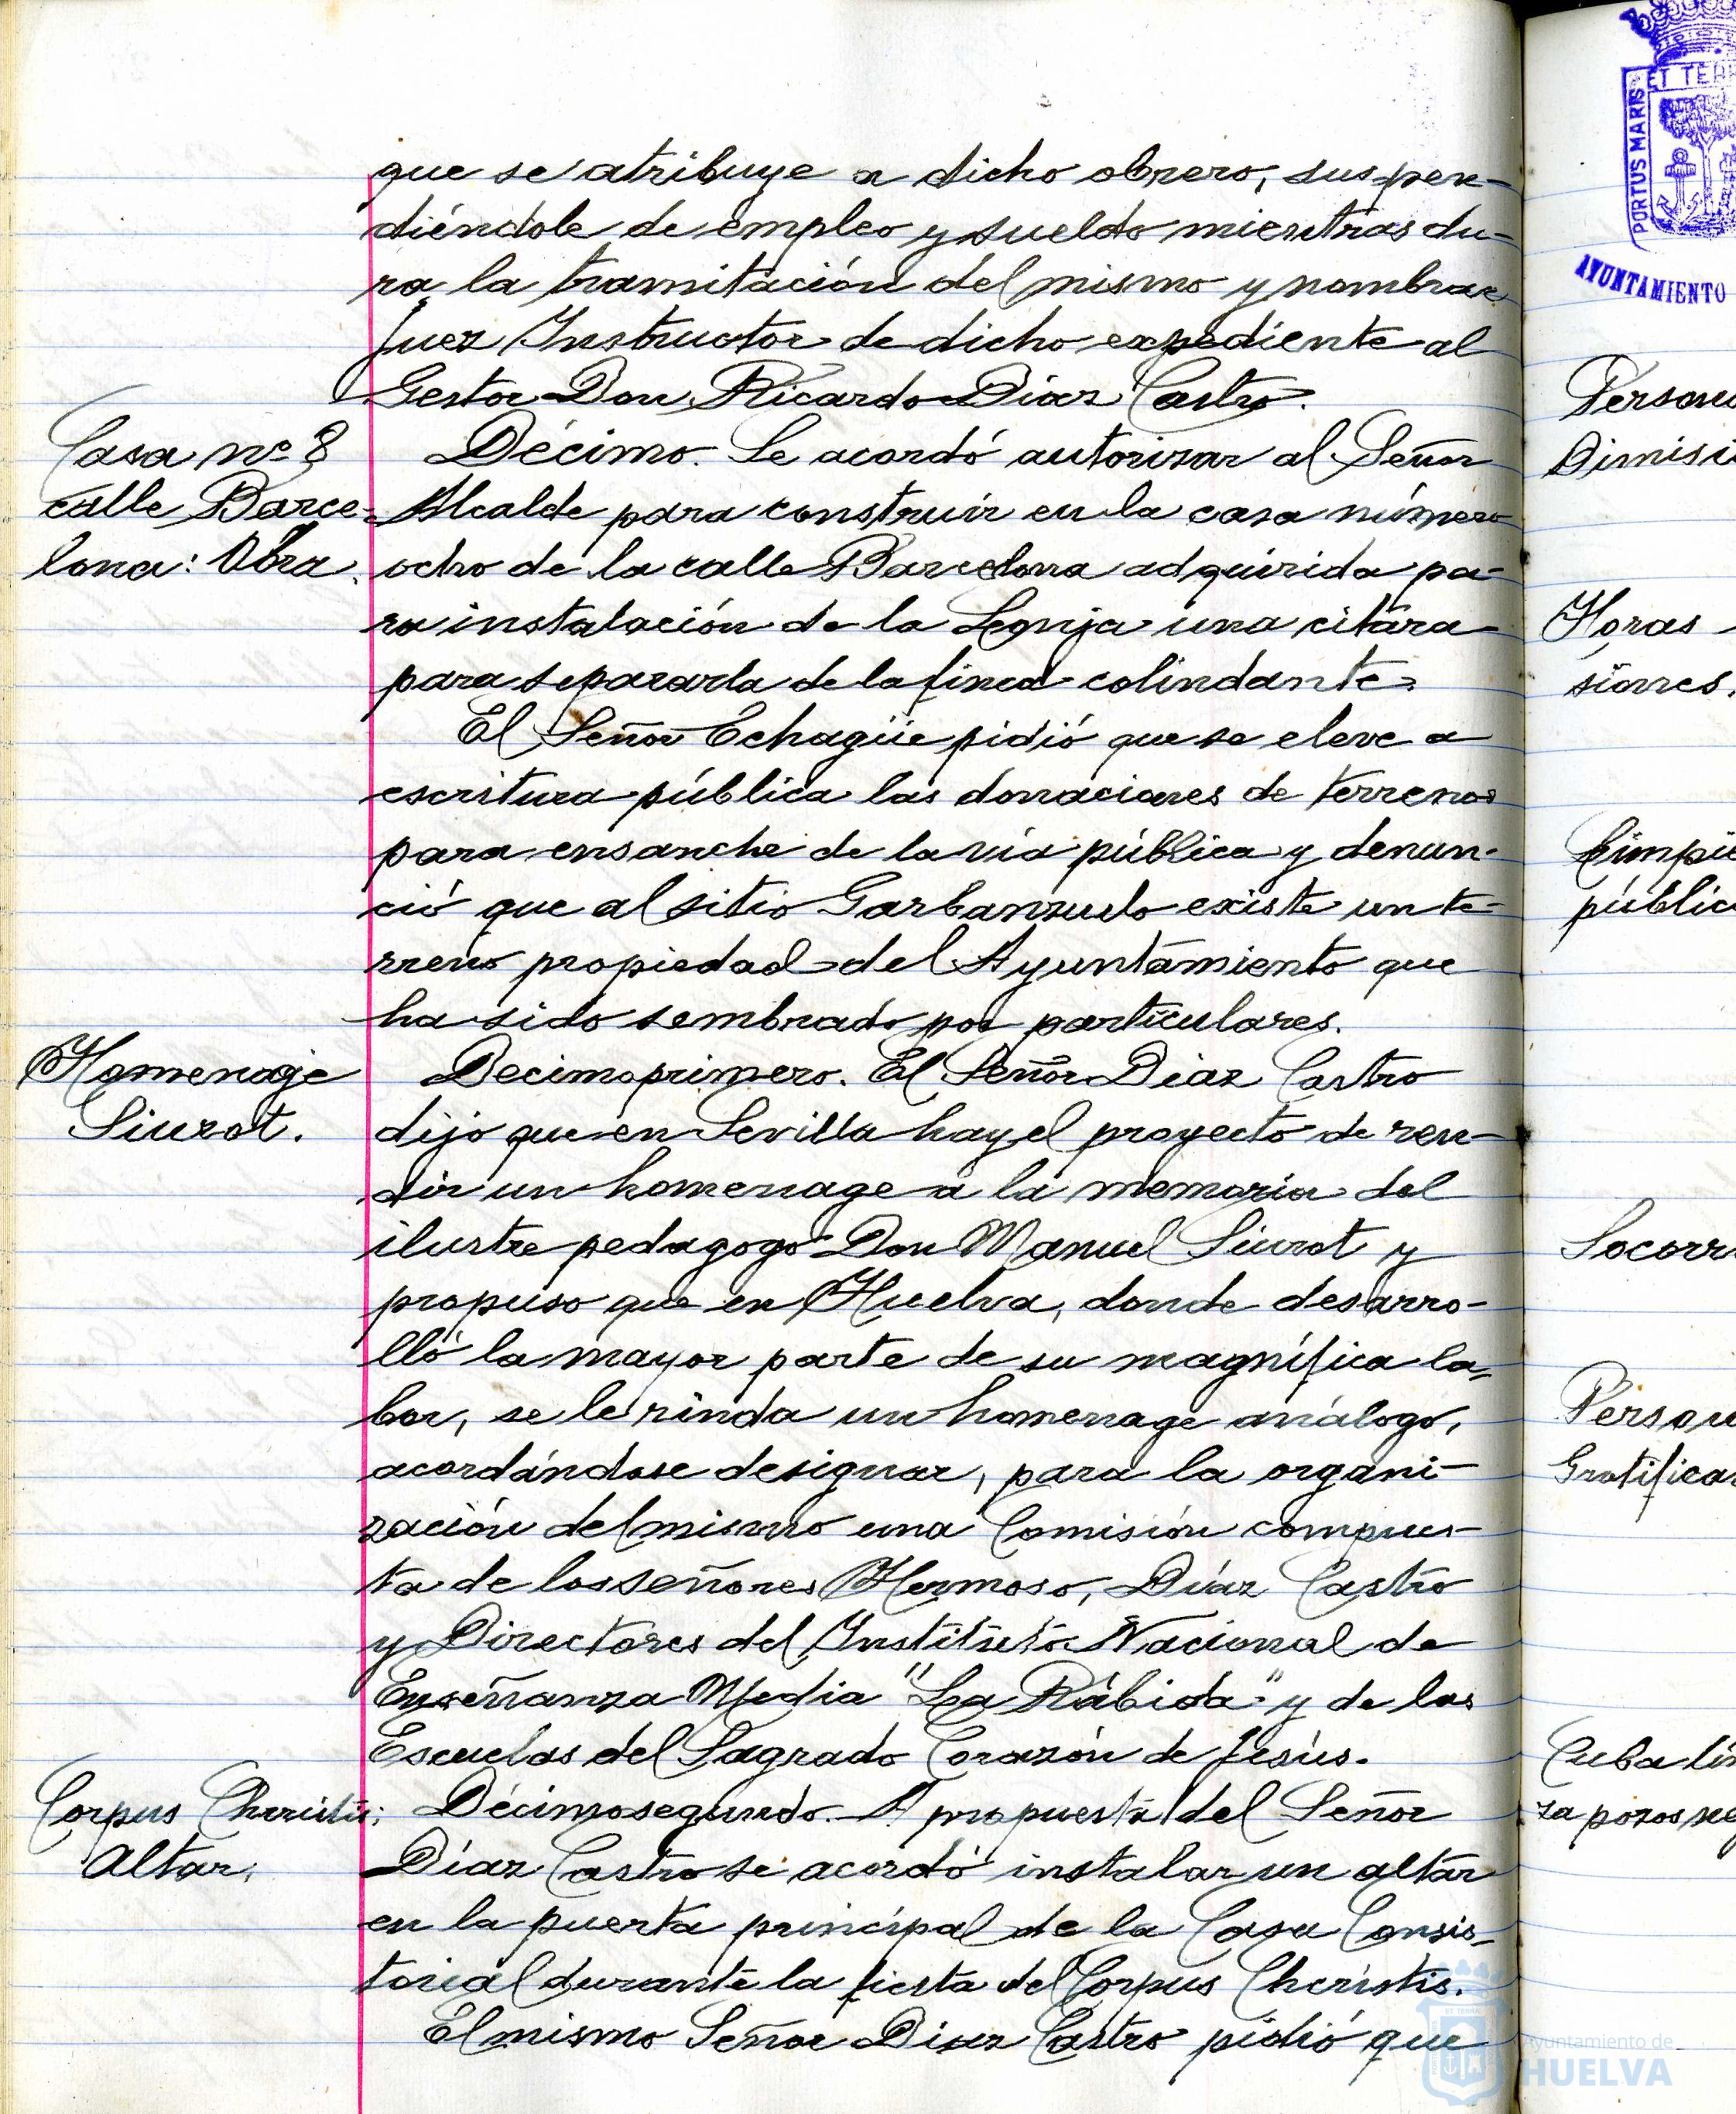 que se atribuye a dicho obrero, suspen-
diéndole de empleo y sueldo mientras du-
ra la tramitación del mismo y nombrar
Juez Instructor de dicho expediente al
Gestor Don Ricardo Díaz Castro.
Casa nº 8
calle Barce-
lona: Obra.
Décimo. Se acordó autorizar al Señor
Alcalde para construir en la casa número
ocho de la calle Barcelona adquirida pa-
ra instalación de la Lonja una citara
para separarla de la finca colindante.
El Señor Echagüe pidió que se eleve a
escritura pública las donaciones de terrenos
para ensanche de la vía pública y denun-
ció que al sitio Garbanzuelo existe un te-
rreno propiedad del Ayuntamiento que
ha sido sembrado por particulares.
Homenaje
Siurot.
Decimoprimero. El Señor Díaz Castro
dijo que en Sevilla hay el proyecto de ren-
dir un homenage a la memoria del
ilustre pedagogo Don Manuel Siurot y
propuso que en Huelva, donde desarro-
lló la mayor parte de su magnífica la-
bor, se le rinda un homenage análogo,
acordándose designar, para la organi-
zación del mismo una Comisión compues-
ta de los señores Hermoso, Díaz Castro
y Directores del Instituto Nacional de
Enseñanza Media "La Rábida" y de las
Escuelas del Sagrado Corazón de Jesús.
Corpus Christis:
Altar.
Décimosegundo. A propuesta del Señor
Díaz Castro se acordó instalar un altar
en la puerta principal de la Casa Consis-
torial durante la fiesta del Corpus Christis.
El mismo Señor Díaz Castro pidió que
PORTUS MARIS
ET TERR
AYUNTAMIENTO
Person
Dimisi
Horas
siones.
Limpie
públic
Socorr
Person
Gratifica
Cuba lim
za pozos neg
Ayuntamiento de
HUELVA